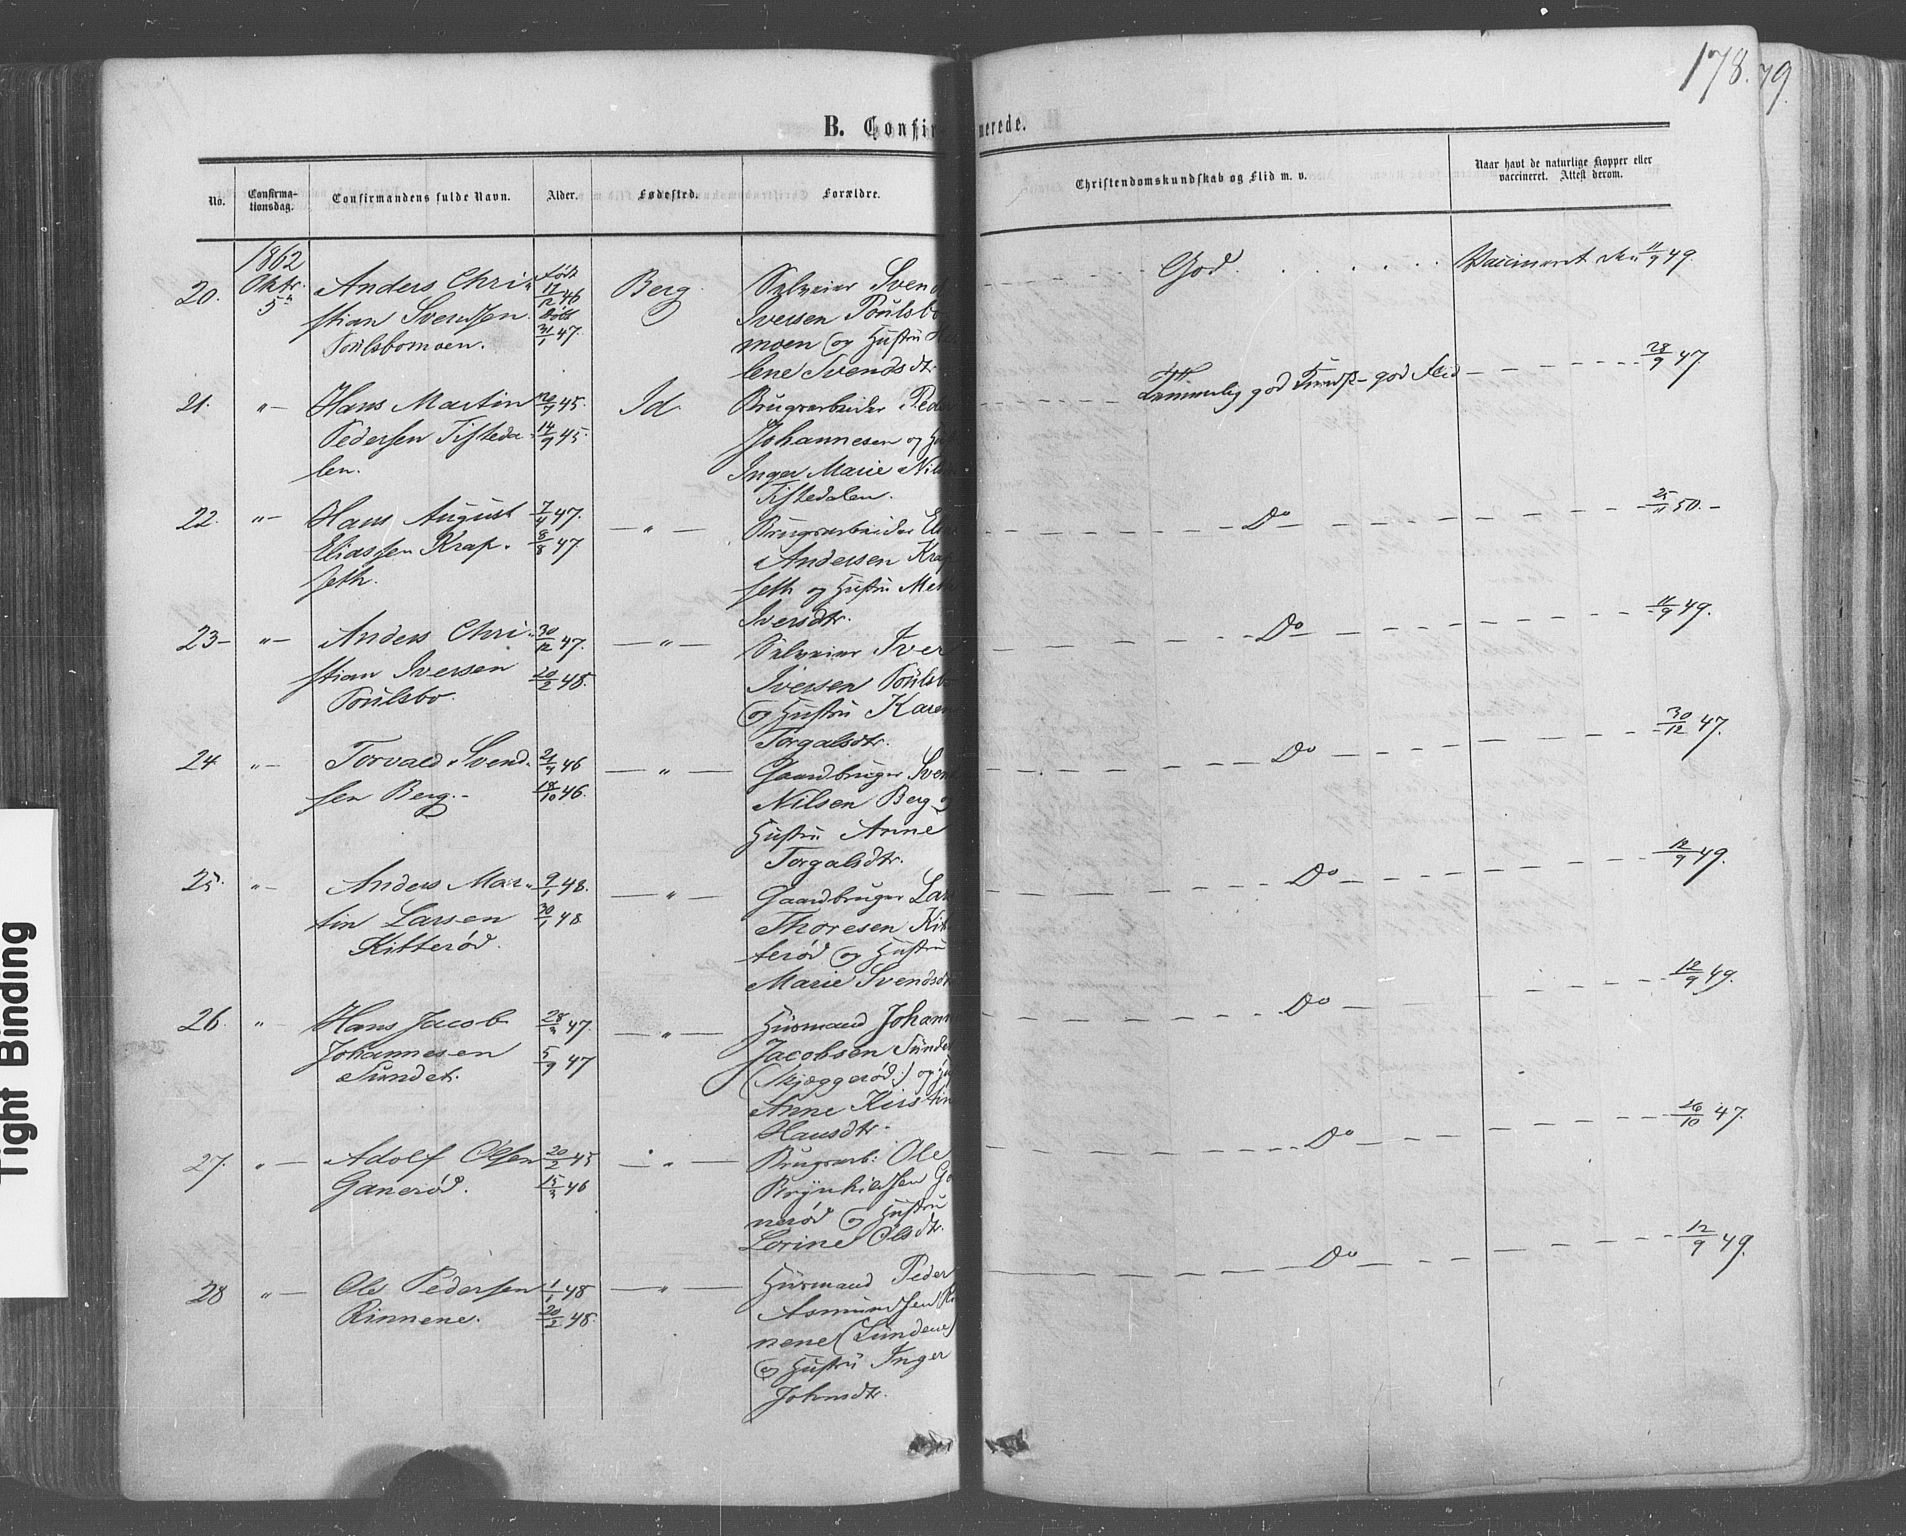 178. 79.
B. Confirmerede.
No.
Confirma-
tionsdag.
Confirmandens fulde Navn.
Alder.
Fødested.
Forældre.
Christendomskundskab og Flid m. v.
Naar havt de naturlige Kopper eller
vaccineret. Attest derom.
1862
20. Oktr. 5te
Anders Chri-
stian Svendsen
Poulsbomoen.
født 17/12 46
døbt 31/1 47.
Berg.
Selveier Svend
Iversen Poulsbo
moen og Hustru
lene Svendsdtr.
God.
Vaccineret den 11/9 49.
21. " -
Hans Martin
Pedersen Tisteda
len.
20/7 45.
14/9 45.
Id
Brugsarbeider Peder
Johannesen og
Inger Marie Nils
Tistedalen.
Temmelig god Kundsk- god Flid
28/9 47
22. " -
Hans August
Eliassen Krap-
seth.
7/4 47.
8/8 47
- " -
Brugsarbeider
Andersen Krap
seth og Hustru
Iversdtr.
Do
25/11 50.-
23- " -
Anders Chri-
stian Iversen
Poulsbo.
30/12 47.
20/2 48.
- " -
Selveier Iver
Iversen Poulsbo
og Hustru Karen
Torgalsdtr.
Do
11/9 49.
24. " -
Torvald Svend-
sen Berg.-
21/9 46
18/10 46.
- " -
Gaardbruger Svend
Nilsen Berg og
Hustru Anne
Torgalsdtr.
Do
30/12 47.
25. " -
Anders Mar-
tin Larsen
Kitterød.
9/1 48.
30/1 48
- " -
Gaardbruger Lars
Thoresen Kit
terød og Hustru
Marie Svendsdt
Do
12/9 49.
26. " -
Hans Jacob
Johannesen
Sundet.
47.
5/9 47
- " -
Husmand Johann
Jacobsen Sundet
(Skjæggerød:) og
Anne Kirstin
Hansdtr.
Do
12/9 49.
27. " -
Adolf Olsen
Ganerød.
20/2 45
15/3 46
- " -
Brugsarb: Ole
Brynhildsen Ga
nerød og Hustru
Lorine Olsdtr.
Do
26/10 47.
28 " -
Ole Pedersen
Rinnene.
1/1 48
20/2 48.
- " -
Husmand Peder
Asmundsen Ri
nnene (Lundene)
og Hustru Inger
Johnsdtr.
Do
12/9 49.
Tight Binding